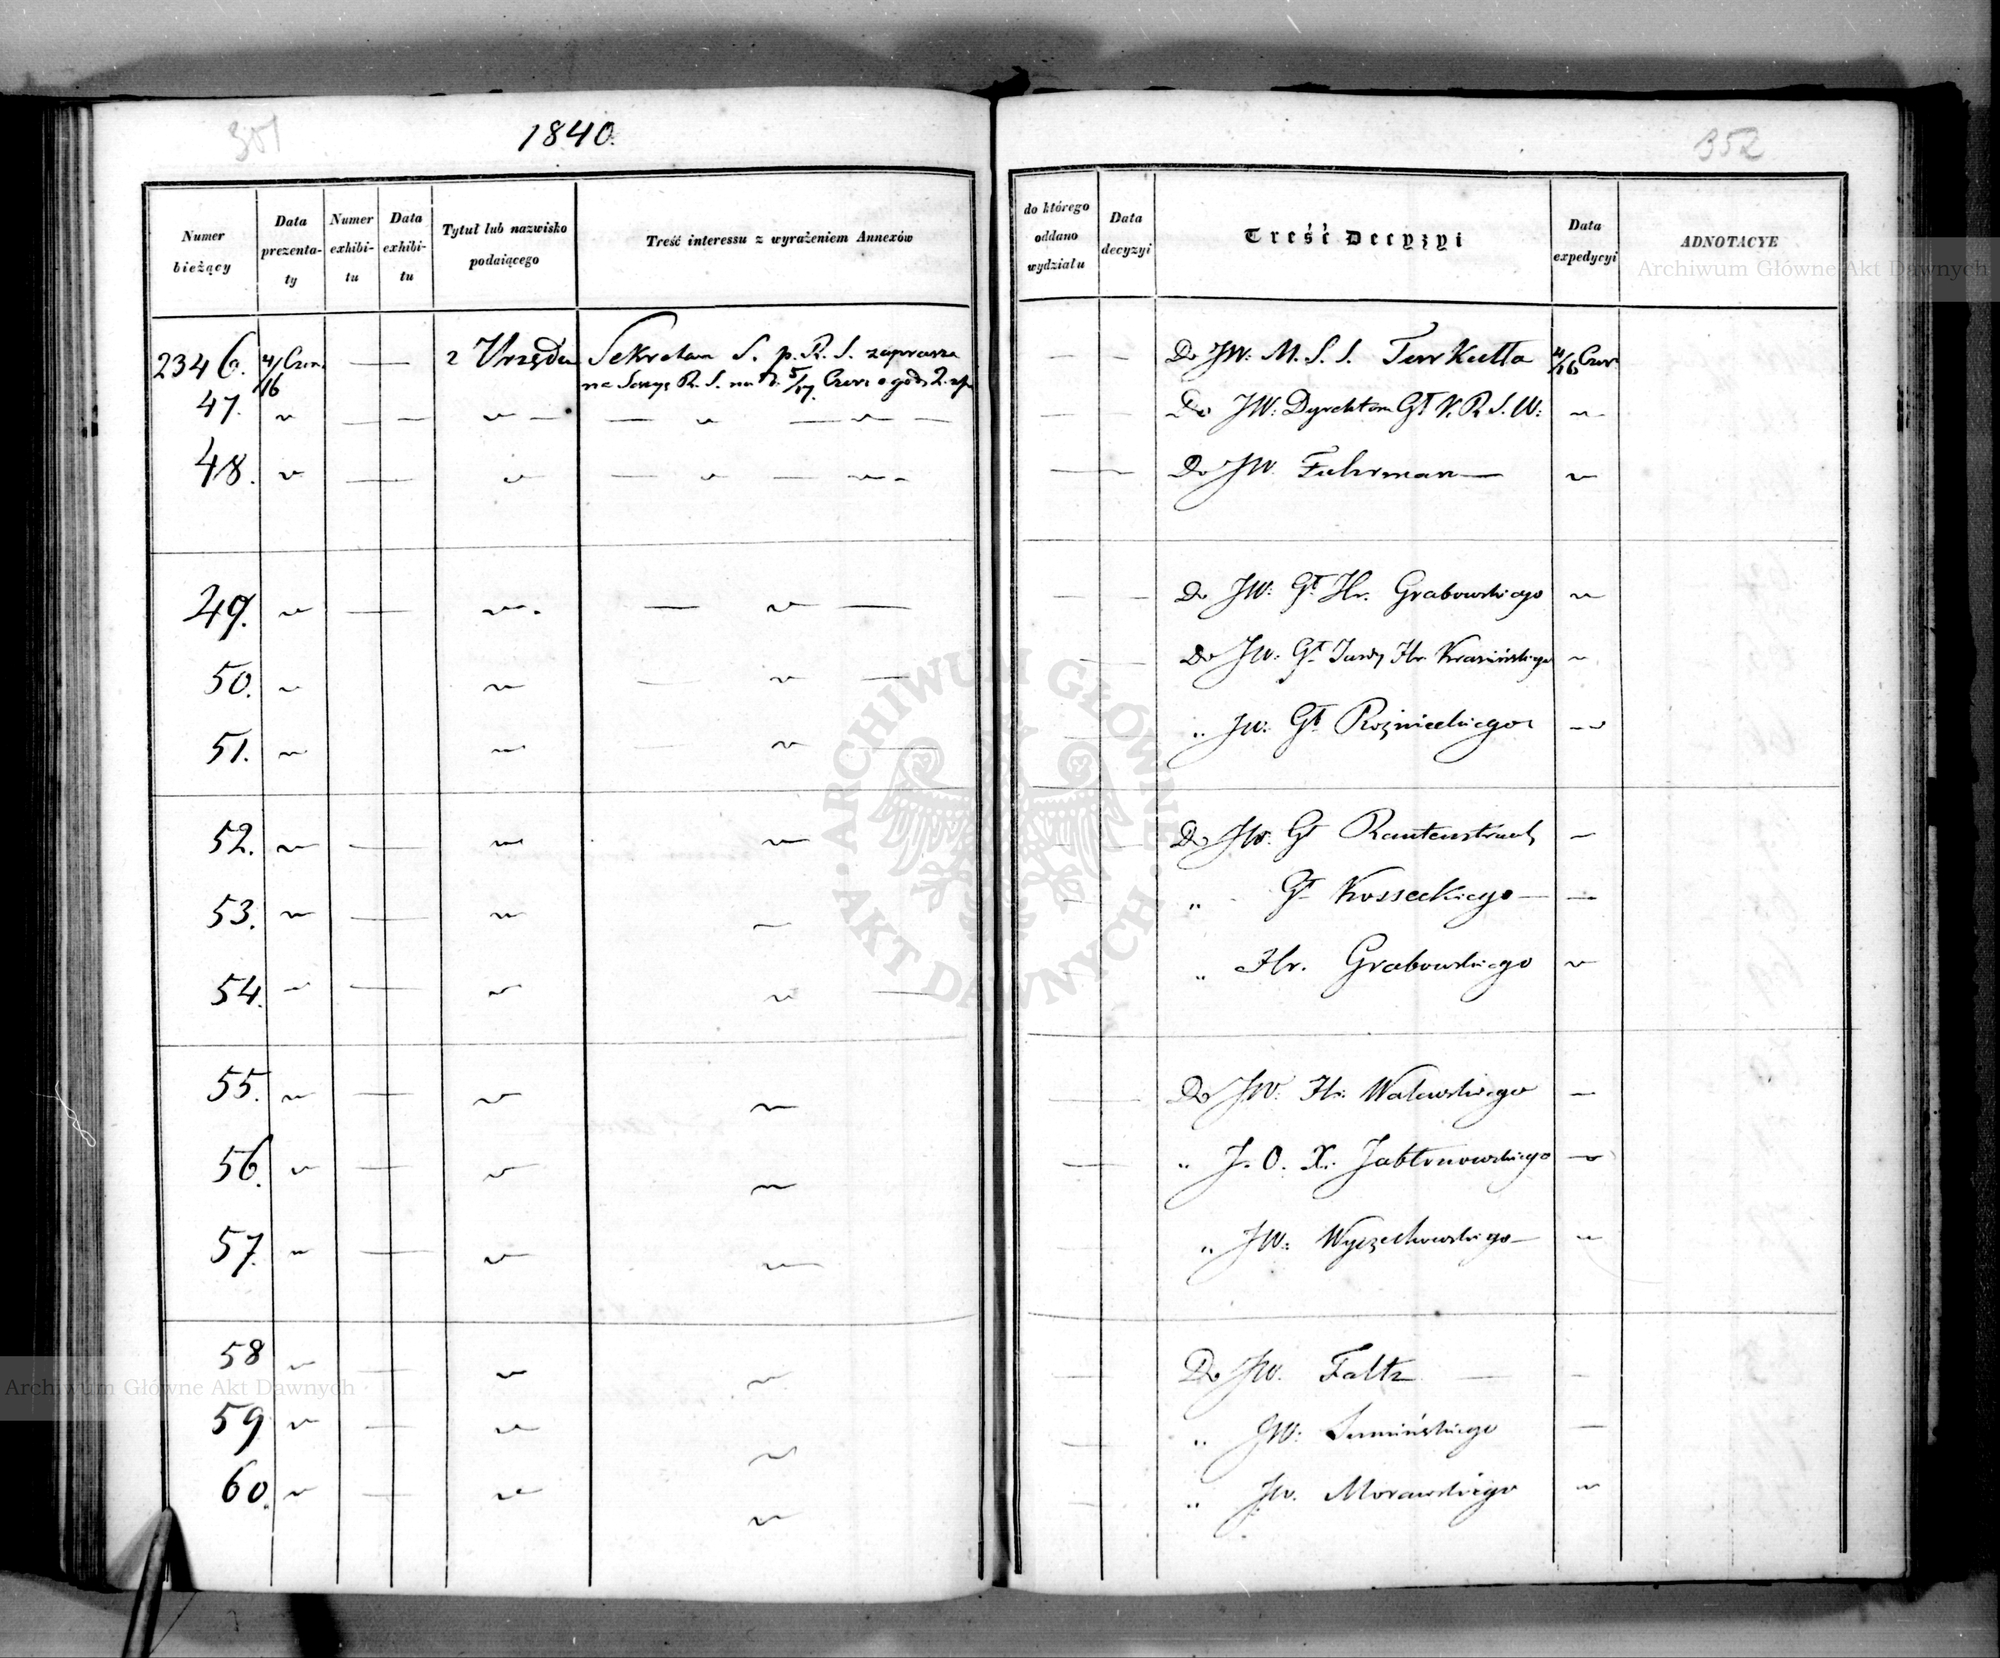 351
1840.
352
Numer bieżący
Data prezenta-ty
Numer exhibi-tu
Data exhibi-tu
Tytuł lub nazwisko podaiącego
Treść interessu z wyrażeniem Annexów
do którego oddano wydziału
Data decyzyi
Treść Decyzyi
Data expedycyi
ADNOTACYE
Archiwum Główne Akt Dawnych
2346. 4/16 Czer. — — z Urzędu Sekretarz S. p. R. S. zaprasza — — Do JW: M. S. S. Turkułła 4/16 Czer
na Sessyę R. S. na d. 5/17. Czer: o godz 2.
47. " — — " — — " — " — — — Do JW: Dyrektora Gł K. R. S. W: "
48. " — — " — " — " - — — Do JW. Fuhrman — "
49. " — " — " — — — Do JW: Gł Hr. Grabowskiego "
50. " " — " — — Do JW: Gł Jazdy Hr. Krasińskiego "
51. " " — " — — " JW: Gł Rożnieckiego "
52. " — " " — — Do JW. Gł Rautenstrauch "
53. " — " " — " Gł Kosseckiego — "
54. " — " " — — " Hr. Grabowskiego "
55. " — " " — Do JW. Hr. Walewskiego "
56. " — " " — " J. O. X. Jabłonowskiego "
57. " — " " — " JW: Wyczechowskiego — "
58 " — " " — Do JW. Faltz — -
59 " — " " — " JW: Sumińskiego —
60. " — " " — " JW. Morawskiego "
ARCHIWUM GŁÓWNE AKT DAWNYCH
Archiwum Główne Akt Dawnych